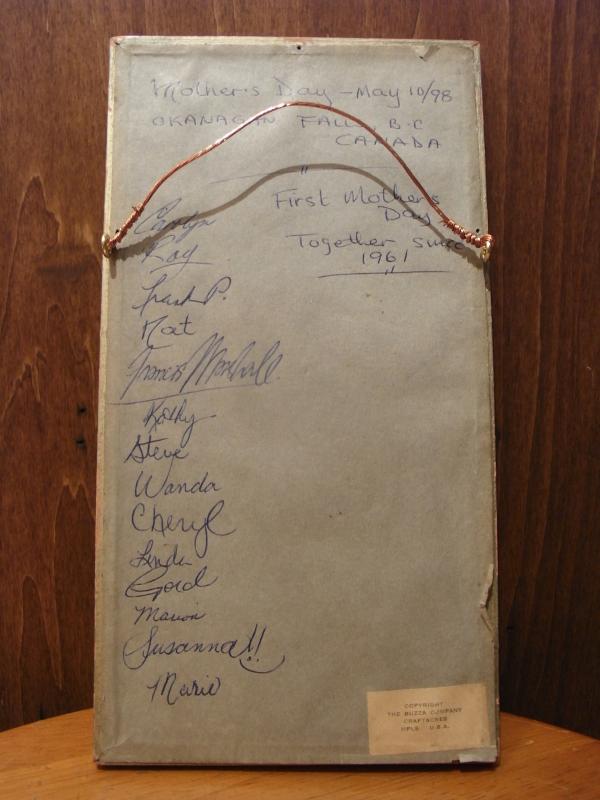 Mother's Day - May 10/98
OKANAGAN FALLS, B.C
CANADA
"
First Mother's
Day
Together since
1961
"
Carlyn
Ray
Frank P.
Nat
Francis Marshall
Kathy
Steve
Wanda
Cheryl
Linda
Gord
Marion
Susanna!!
Marie
COPYRIGHT
THE BUZZA COMPANY
CRAFTACRES
MPLS U.S.A.